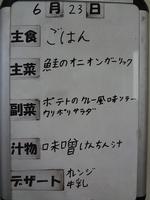 6月23日
主食 ごはん
主菜 鮭のオニオンガーリック
副菜 ポテトのカレー風味ソテー
カリポリサラダ
汁物 味噌けんちん汁
デザート オレンジ
牛乳